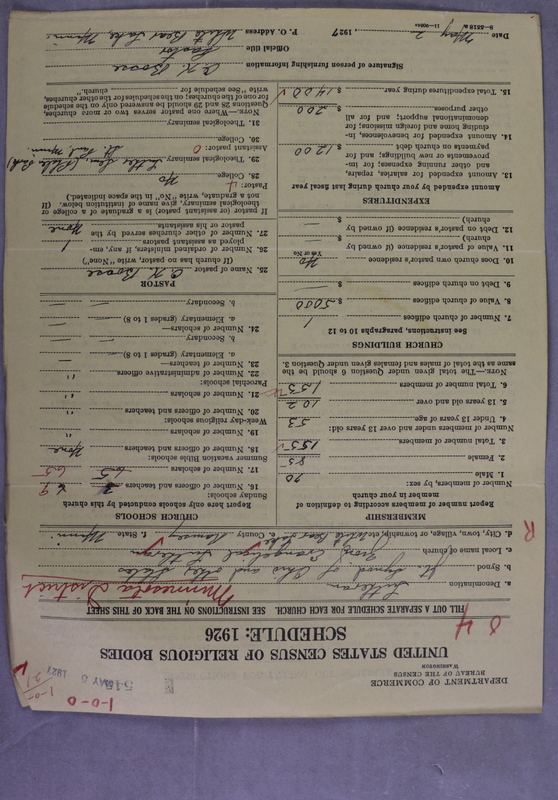 DEPARTMENT OF COMMERCE
BUREAU OF THE CENSUS
WASHINGTON
1-0-0
MAY 3 1927
UNITED STATES CENSUS OF RELIGIOUS BODIES
SCHEDULE: 1926
84
FILL OUT A SEPARATE SCHEDULE FOR EACH CHURCH. SEE INSTRUCTIONS ON THE BACK OF THIS SHEET
Minnesota District
a. Denomination Lutheran
b. Synod Jt. Synod of Ohio and other States
c. Local name of church Zion Evangelical Lutheran
d. City, town, village, or township, etc. White Bear Lake e. County Ramsey f. State Minn.
R
MEMBERSHIP
Report number of members according to definition of
member in your church
Number of members, by sex:
1. Male 70
2. Female 85
3. Total number of members 155
Number of members under and over 13 years old:
4. Under 13 years of age 53
5. 13 years old and over 102
6. Total number of members 155
NOTE.—The total given under Question 6 should be the
same as the total of males and females given under Question 3.
CHURCH BUILDINGS
See instructions, paragraphs 10 to 12
7. Number of church edifices 1
8. Value of church edifices $ 5000
9. Debt on church edifices $ —
10. Does church own pastor's residence No
Yes or No
11. Value of pastor's residence (if owned by
church) $ —
12. Debt on pastor's residence (if owned by
church) $ —
EXPENDITURES
Amount expended by your church during last fiscal year
13. Amount expended for salaries, repairs,
and other running expenses; for im-
provements or new buildings; and for
payments on church debt $ 1200
14. Amount expended for benevolences, in-
cluding home and foreign missions; for
denominational support; and for all
other purposes $ 200
15. Total expenditures during year $ 1400
CHURCH SCHOOLS
Report here only schools conducted by this church
Sunday schools:
16. Number of officers and teachers
17. Number of scholars 65 65
Summer vacation Bible schools:
18. Number of officers and teachers None
19. Number of scholars "
Week-day religious schools:
20. Number of officers and teachers "
21. Number of scholars "
Parochial schools:
22. Number of administrative officers "
23. Number of teachers—
a. Elementary (grades 1 to 8) —
b. Secondary —
24. Number of scholars—
a. Elementary (grades 1 to 8) —
b. Secondary —
PASTOR
25. Name of pastor
(If church has no pastor, write "None")
26. Number of ordained ministers, if any, em-
ployed as assistant pastors 1
27. Number of other churches served by the
pastor or his assistants None
If pastor (or assistant pastor) is a graduate of a college or
theological seminary, give name of institution below. (If
not a graduate, write "No" in the space indicated.)
Pastor:
28. College No
29. Theological seminary Luther Sem.
St. Paul, Minn.
Assistant pastor: 0
30. College
31. Theological seminary
NOTE.—Where one pastor serves two or more churches,
Questions 25 and 29 should be answered only on the schedule
for one of the churches; on the schedules for the other churches,
write "See schedule for church."
Signature of person furnishing information
Official title Pastor
P. O. Address White Bear Lake, Minn.
Date May 2, 1927